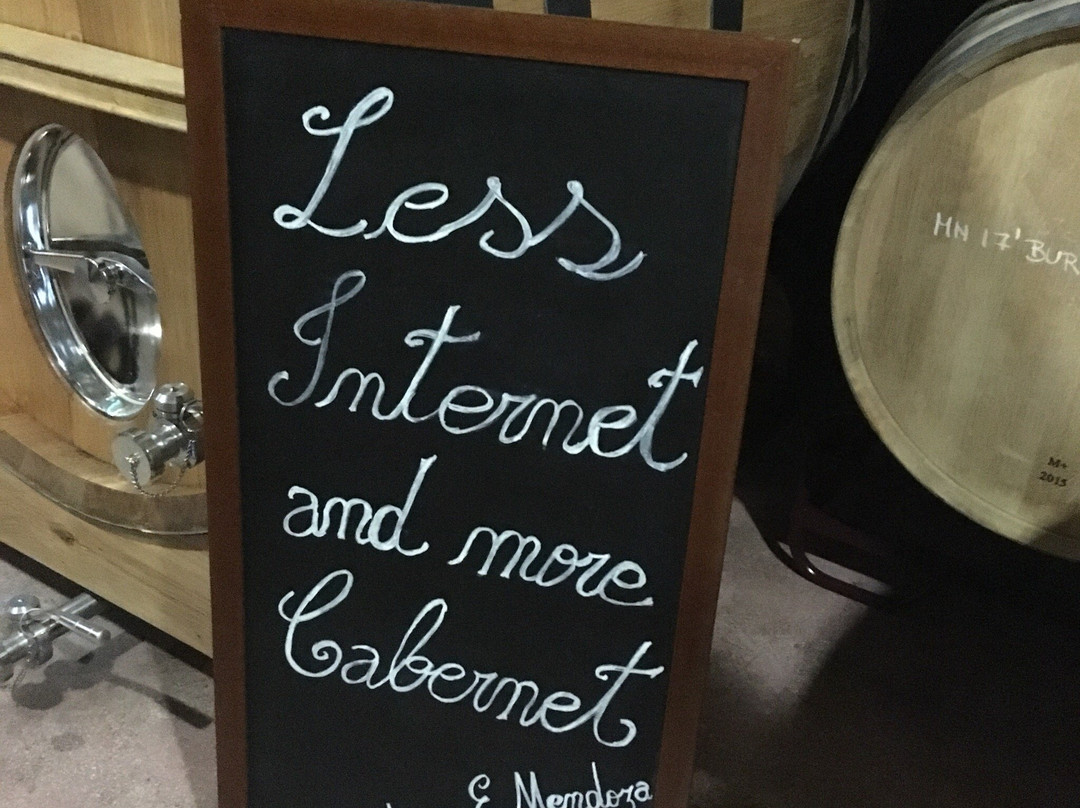 Less
Internet
and more
Cabernet
E Mendoza
MN 17' BUR
M+
2015